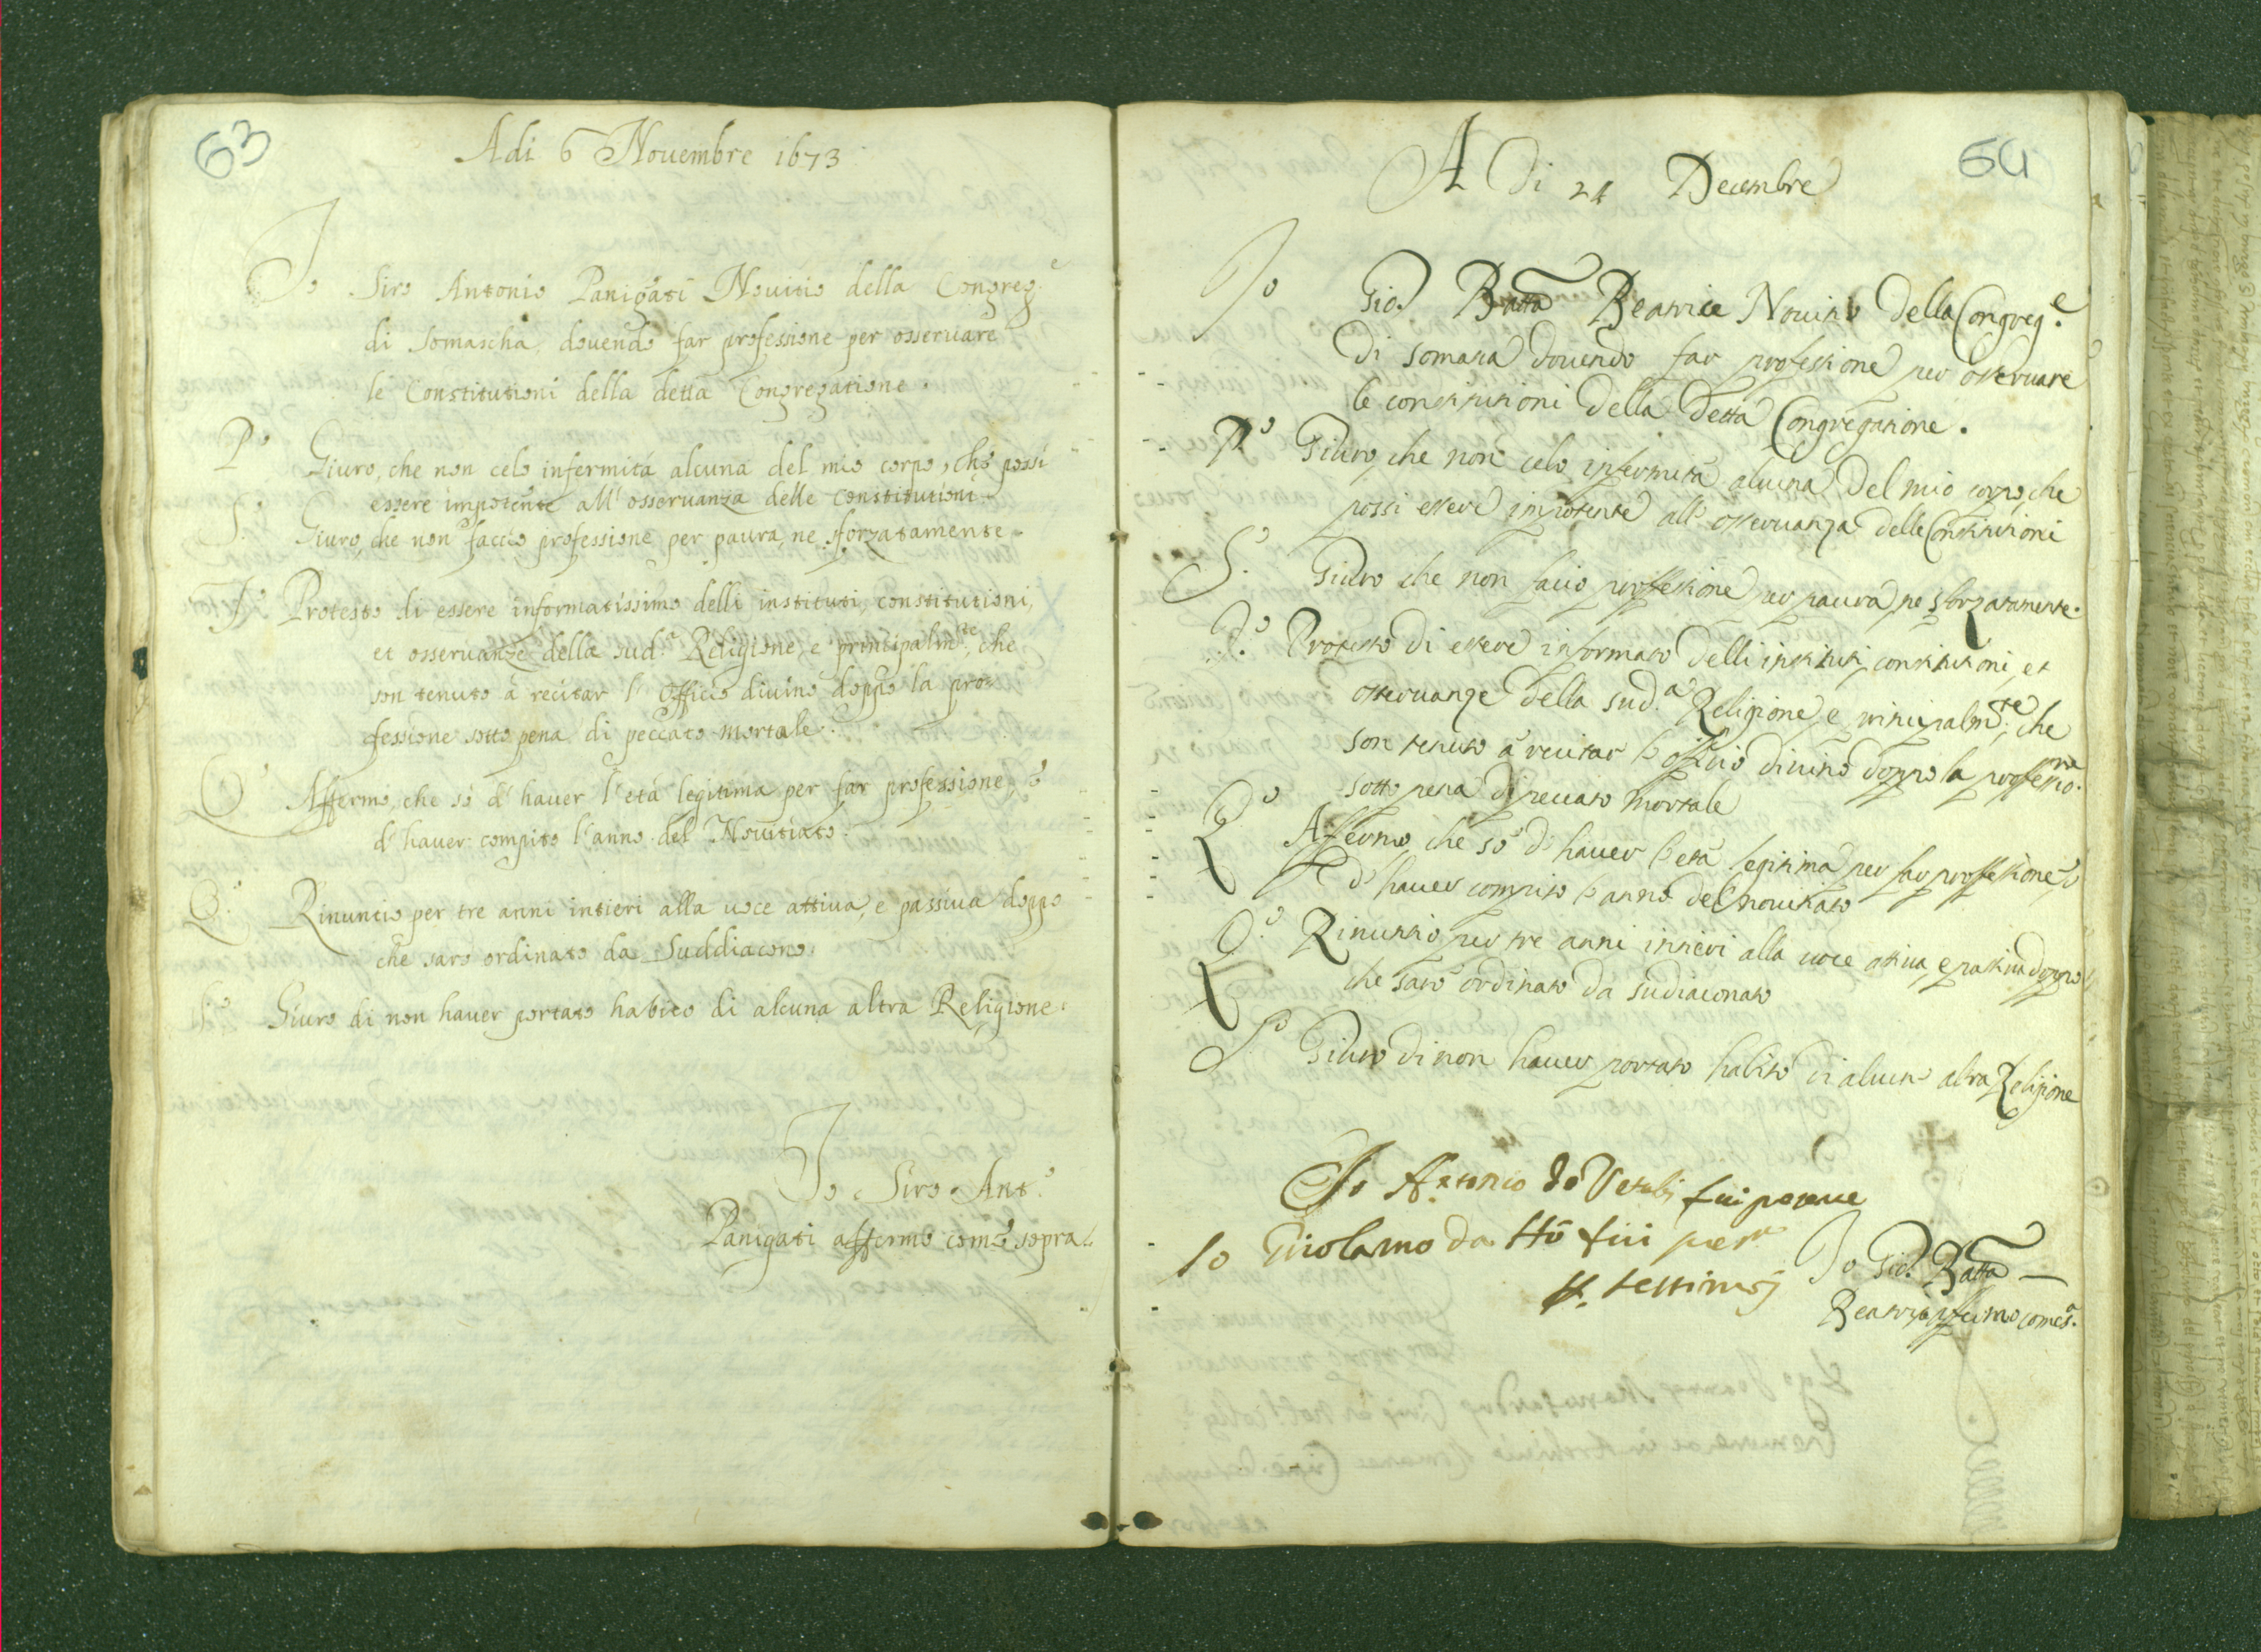 63
Adi 6 Nouembre 1673
Io Siro Antonio Panigati Nouitio della Congreg.e
di Somascha, douendo far professione per osseruare
le Constitutioni della detta Congregatione.
P.o Giuro, che non celo infermitá alcuna del mio corpo, che possi
essere impotente all' osseruanza delle constitutioni.
S.o Giuro, che non faccio professione per paura, ne sforzatamente.
T.o Protesto di essere informatissimo delli instituti, constitutioni,
et osseruanze della sud.a Religione, e principalm.te, che
son tenuto á recitar l' Officio diuino doppo la pro-
fessione sotto pena di peccato mortale.
Q.o Affermo, che só d' hauer l' etá legitima per far professione, e
d' hauer compito l' anno del Nouitiato.
Q.o Rinuncio per tre anni intieri alla uoce attiua, e passiua doppo
che saro ordinato da Suddiacono.
Giuro di non hauer portato habito di alcuna altra Religione.
Io Siro Ant.o
Panigati affermo come sopra.
64
A Di 24 Decembre
Io Gio. Batta Beatrice Nouitio della Congreg.e
di somasca douendo far professione per osseruare
le constitutioni della detta Congregatione.
P.o Giuro, che non celo infermitá alcuna del mio corpo, che
possi essere impotente all' osseruanza delle Constitutioni
S.o Giuro che non facio professione per paura ne sforzatamente.
T.o Protesto di essere informato delli instituti, constitutioni, et
osseruanze della sud.a Religione, e principalm.te, che
son tenuto á recitar l' officio diuino doppo la professio.ne
sotto pena di peccato mortale
Q.o Affermo, che só d' hauer l' etá legitima per far professione, e
d' hauer compito l' anno del nouitiato
Q.o Rinuntio per tre anni intieri alla uoce attiua, e passiua doppo
che saró ordinato da sudiaconato
S.o Giuro di non hauer portato habito di alcun altra Religione
Io Antonio de fui presente
Io Girolamo da fui
Io Gio. Batta
Beatrice affermo come s.a